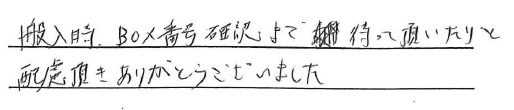 搬入時、BOX番号確認まで 待って頂いたりと
配慮頂きありがとうございました